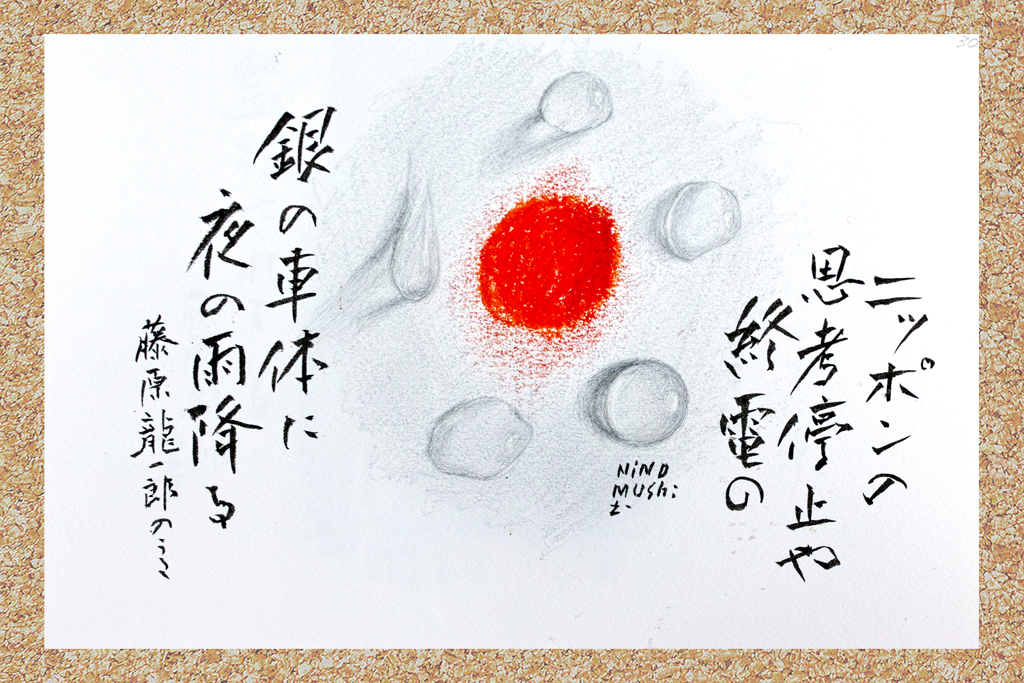 ニッポンの
思考停止や
終電の
銀の車体に
夜の雨降る
藤原龍一郎のうた
NiND
MUShi